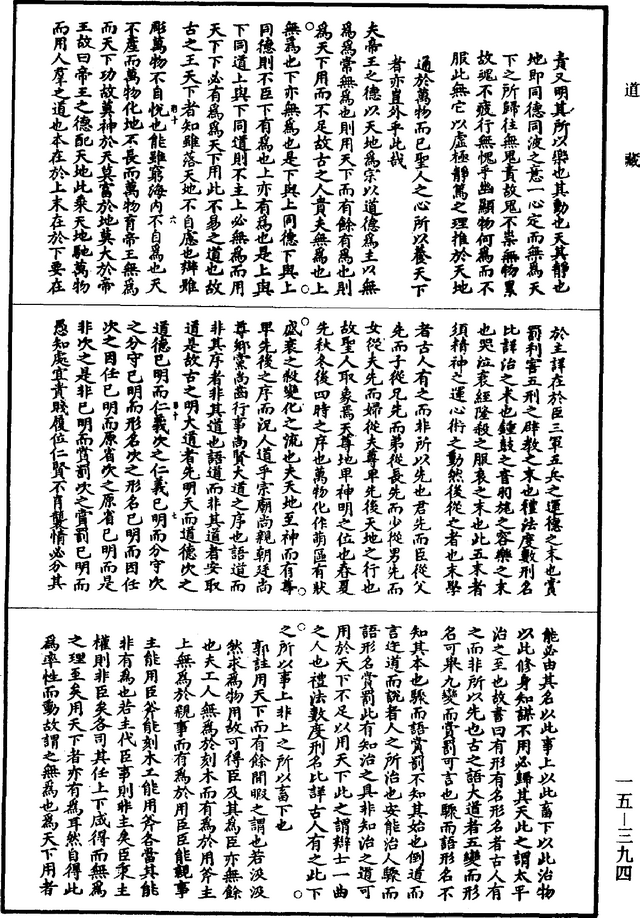 道藏
責又明其所以樂也其動也天其靜也
地即同德同波之意一心定而無為天
下之所歸往無鬼責故鬼不祟無物累
故魂不疲行無愧乎幽顯物何為而不
服此無它以虛極靜篤之理推於天地
通於萬物而已聖人之心所以養天下
者亦豈外乎此哉
夫帝王之德以天地為宗以道德為主以無
為為常無為也則用天下而有餘有為也則
為天下用而不足故古之人貴夫無為也上
無為也下亦無為也是下與上同德下與上
同德則不臣下有為也上亦有為也是上與
下同道上與下同道則不主上必無為而用
天下下必有為為天下用此不易之道也故
古之王天下者知雖落天地不自慮也辯雖
彫萬物不自悅也能雖窮海內不自為也天
不產而萬物化地不長而萬物育帝王無為
而天下功故莫神於天莫富於地莫大於帝
王故曰帝王之德配天地此乘天地馳萬物
而用人群之道也本在於上末在於下要在
於主詳在於臣三軍五兵之運德之末也賞
罰利害五刑之辟教之末也禮法度數刑名
比詳治之末也鍾鼓之音羽旄之容樂之末
也哭泣衰絰隆殺之服哀之末也此五末者
須精神之運心術之動然後從之者也末學
者古人有之而非所以先也君先而臣從父
先而子從兄先而弟從長先而少從男先而
女從夫先而婦從夫尊卑先後天地之行也
故聖人取象焉天尊地卑神明之位也春夏
先秋冬後四時之序也萬物化作萌區有狀
盛衰之殺變化之流也夫天地至神而有尊
卑先後之序而況人道乎宗廟尚親朝廷尚
尊鄉黨尚齒行事尚賢大道之序也語道而
非其序者非其道也語道而非其道者安取
道是故古之明大道者先明天而道德次之
道德已明而仁義次之仁義已明而分守次
之分守已明而形名次之形名已明而因任
次之因任已明而原省次之原省已明而是
非次之是非已明而賞罰次之賞罰已明而
愚知處宜貴賤履位仁賢不肖襲情必分其
能必由其名以此事上以此畜下以此治物
以此修身知謀不用必歸其天此之謂太平
治之至也故書曰有形有名形名者古人有
之而非所以先也古之語大道者五變而形
名可舉九變而賞罰可言也驟而語形名不
知其本也驟而語賞罰不知其始也倒道而
言迕道而說者人之所治也安能治人驟而
語形名賞罰此有知治之具非知治之道可
用於天下不足以用天下此之謂辯士一曲
之人也禮法數度刑名比詳古人有之此下
之所以事上非上之所以畜下也
郭註用天下而有餘閒暇之謂也若汲汲
然求為物用故可得臣及其為臣亦無餘
也夫工人無為於刻木而有為於用斧主
上無為於親事而有為於用臣臣能親事
主能用臣斧能刻木工能用斧各當其能
非有為也若主代臣事則非主矣臣秉主
權則非臣矣各司其任上下咸得而無為
之理至矣用天下者亦有為耳然自得此
為率性而動故謂之無為也為天下用者
一五—三九四